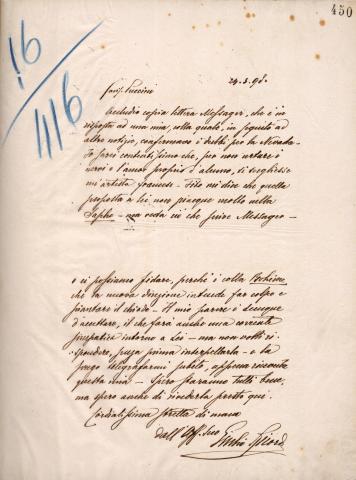 450
16
416
24. 3. 98.
Caris. Puccini
Accludo copia lettera Messager, che è in
risposta ad una mia, colla quale, in seguito ad
altre notizie, confermavo i dubbi per la Nevada.
Io sarei contentissimo che, per non urtare i
nervi e l'amor proprio d'alcuno, si scegliesse
un'artista francese - Tito mi dice che quella
proposta a Lei non piacque molto nella
Sapho - ma veda ciò che scrive Messager -
e ci possiamo fidare, perchè è colla Bohème
che la nuova direzione intende far colpo e
piantare il chiodo. - Il mio parere è dunque
d'accettare, il che farà anche una corrente
simpatica intorno a Lei - ma non volli ri-
spondere, senza prima interpellarla - e la
prego telegrafarmi subito, appena ricevuta
questa mia - Spero staranno tutti bene,
ma spero anche di rivederla presto qui.
Cordialissima stretta di mano
dall'Aff. suo
Giulio Ricordi